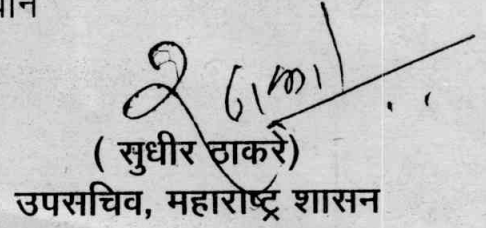 ( सुधीर ठाकरे)
उपसचिव, महाराष्ट्र शासन